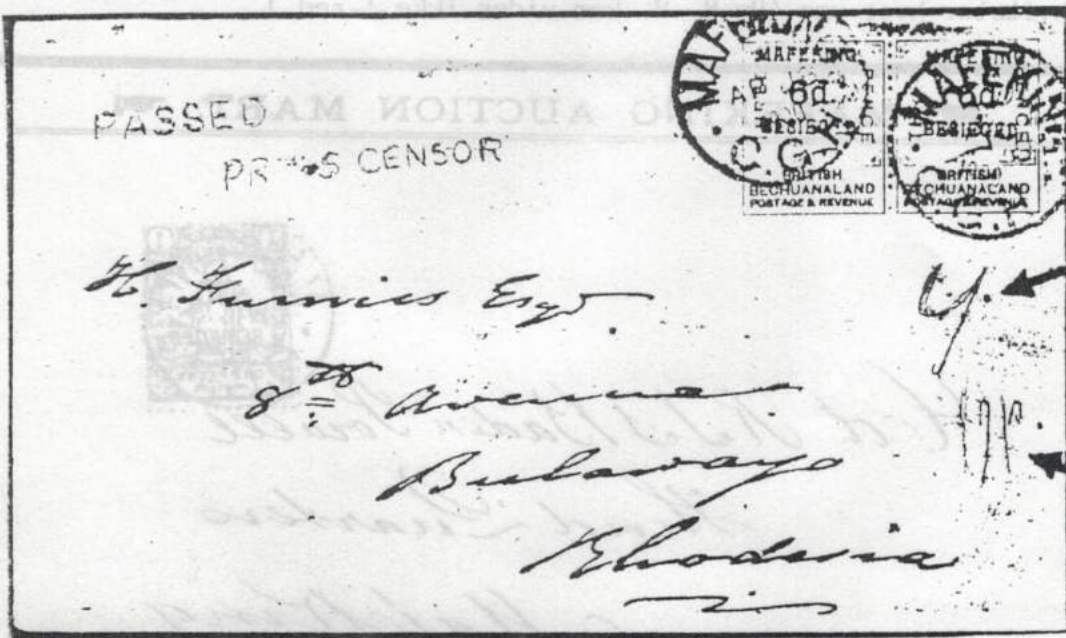 PASSED
PRESS CENSOR
MAFEKING
6d
BESIEGED
BRITISH
BECHUANALAND
POSTAGE & REVENUE
MAFEKING
6d
BESIEGED
BRITISH
BECHUANALAND
POSTAGE & REVENUE
MAFEKING
C.G.H.
AUCTION MART
H. Furnies Esqr
8th Avenue
Bulawayo
Rhodesia